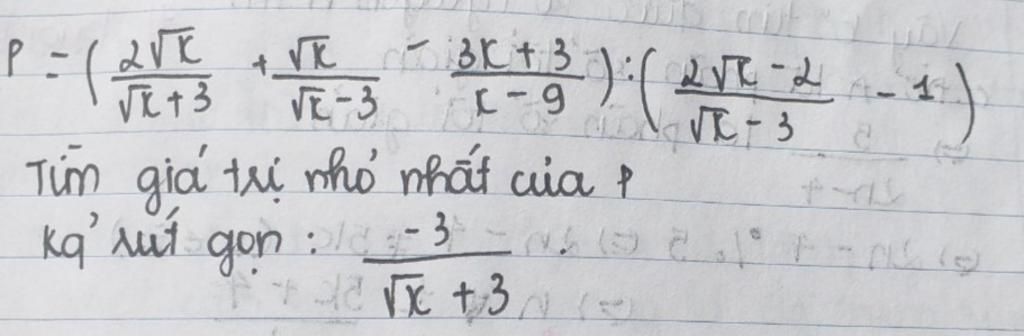 P = (2√x/(√x + 3) + √x/(√x - 3) - (3x + 3)/(x - 9)) : ((2√x - 2)/(√x - 3) - 1)
Tìm giá trị nhỏ nhất của P
Kq' rút gọn : -3/(√x + 3)